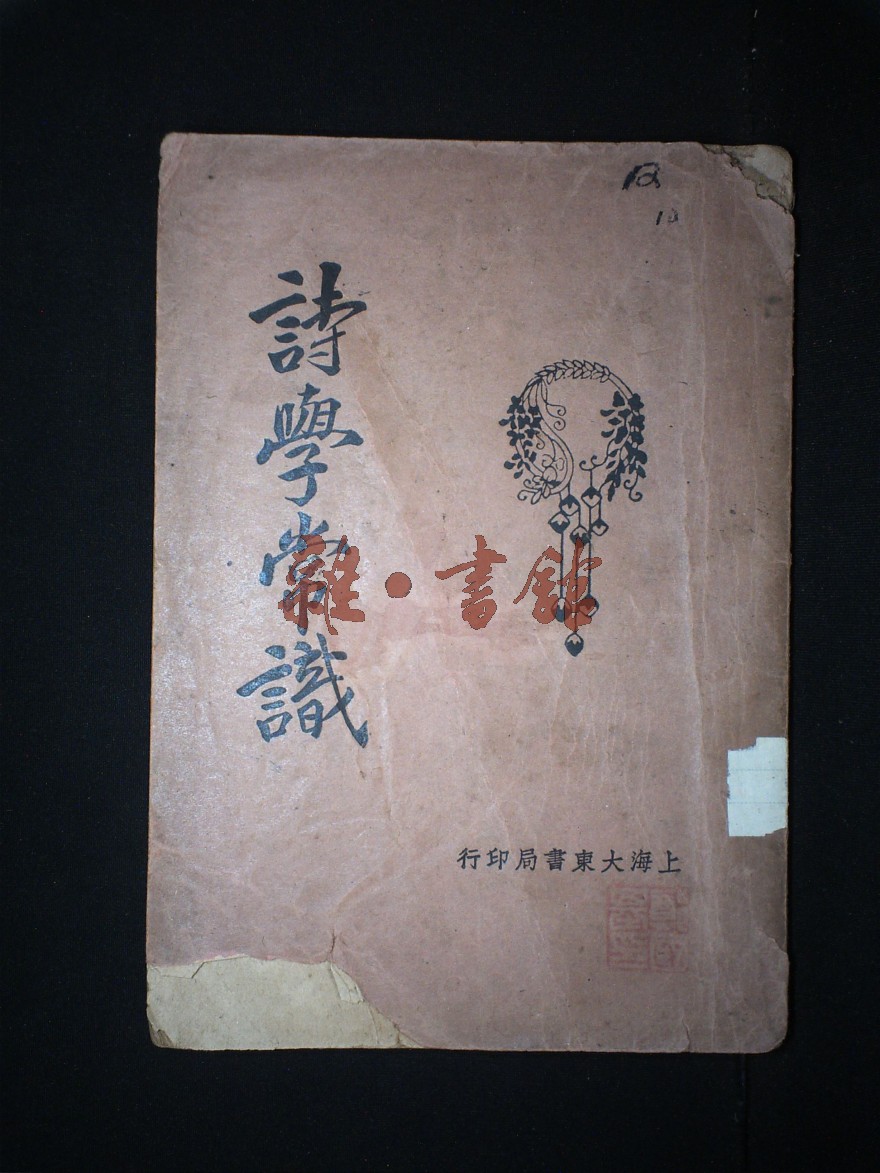 詩學常識
上海大東書局印行
雜·書館